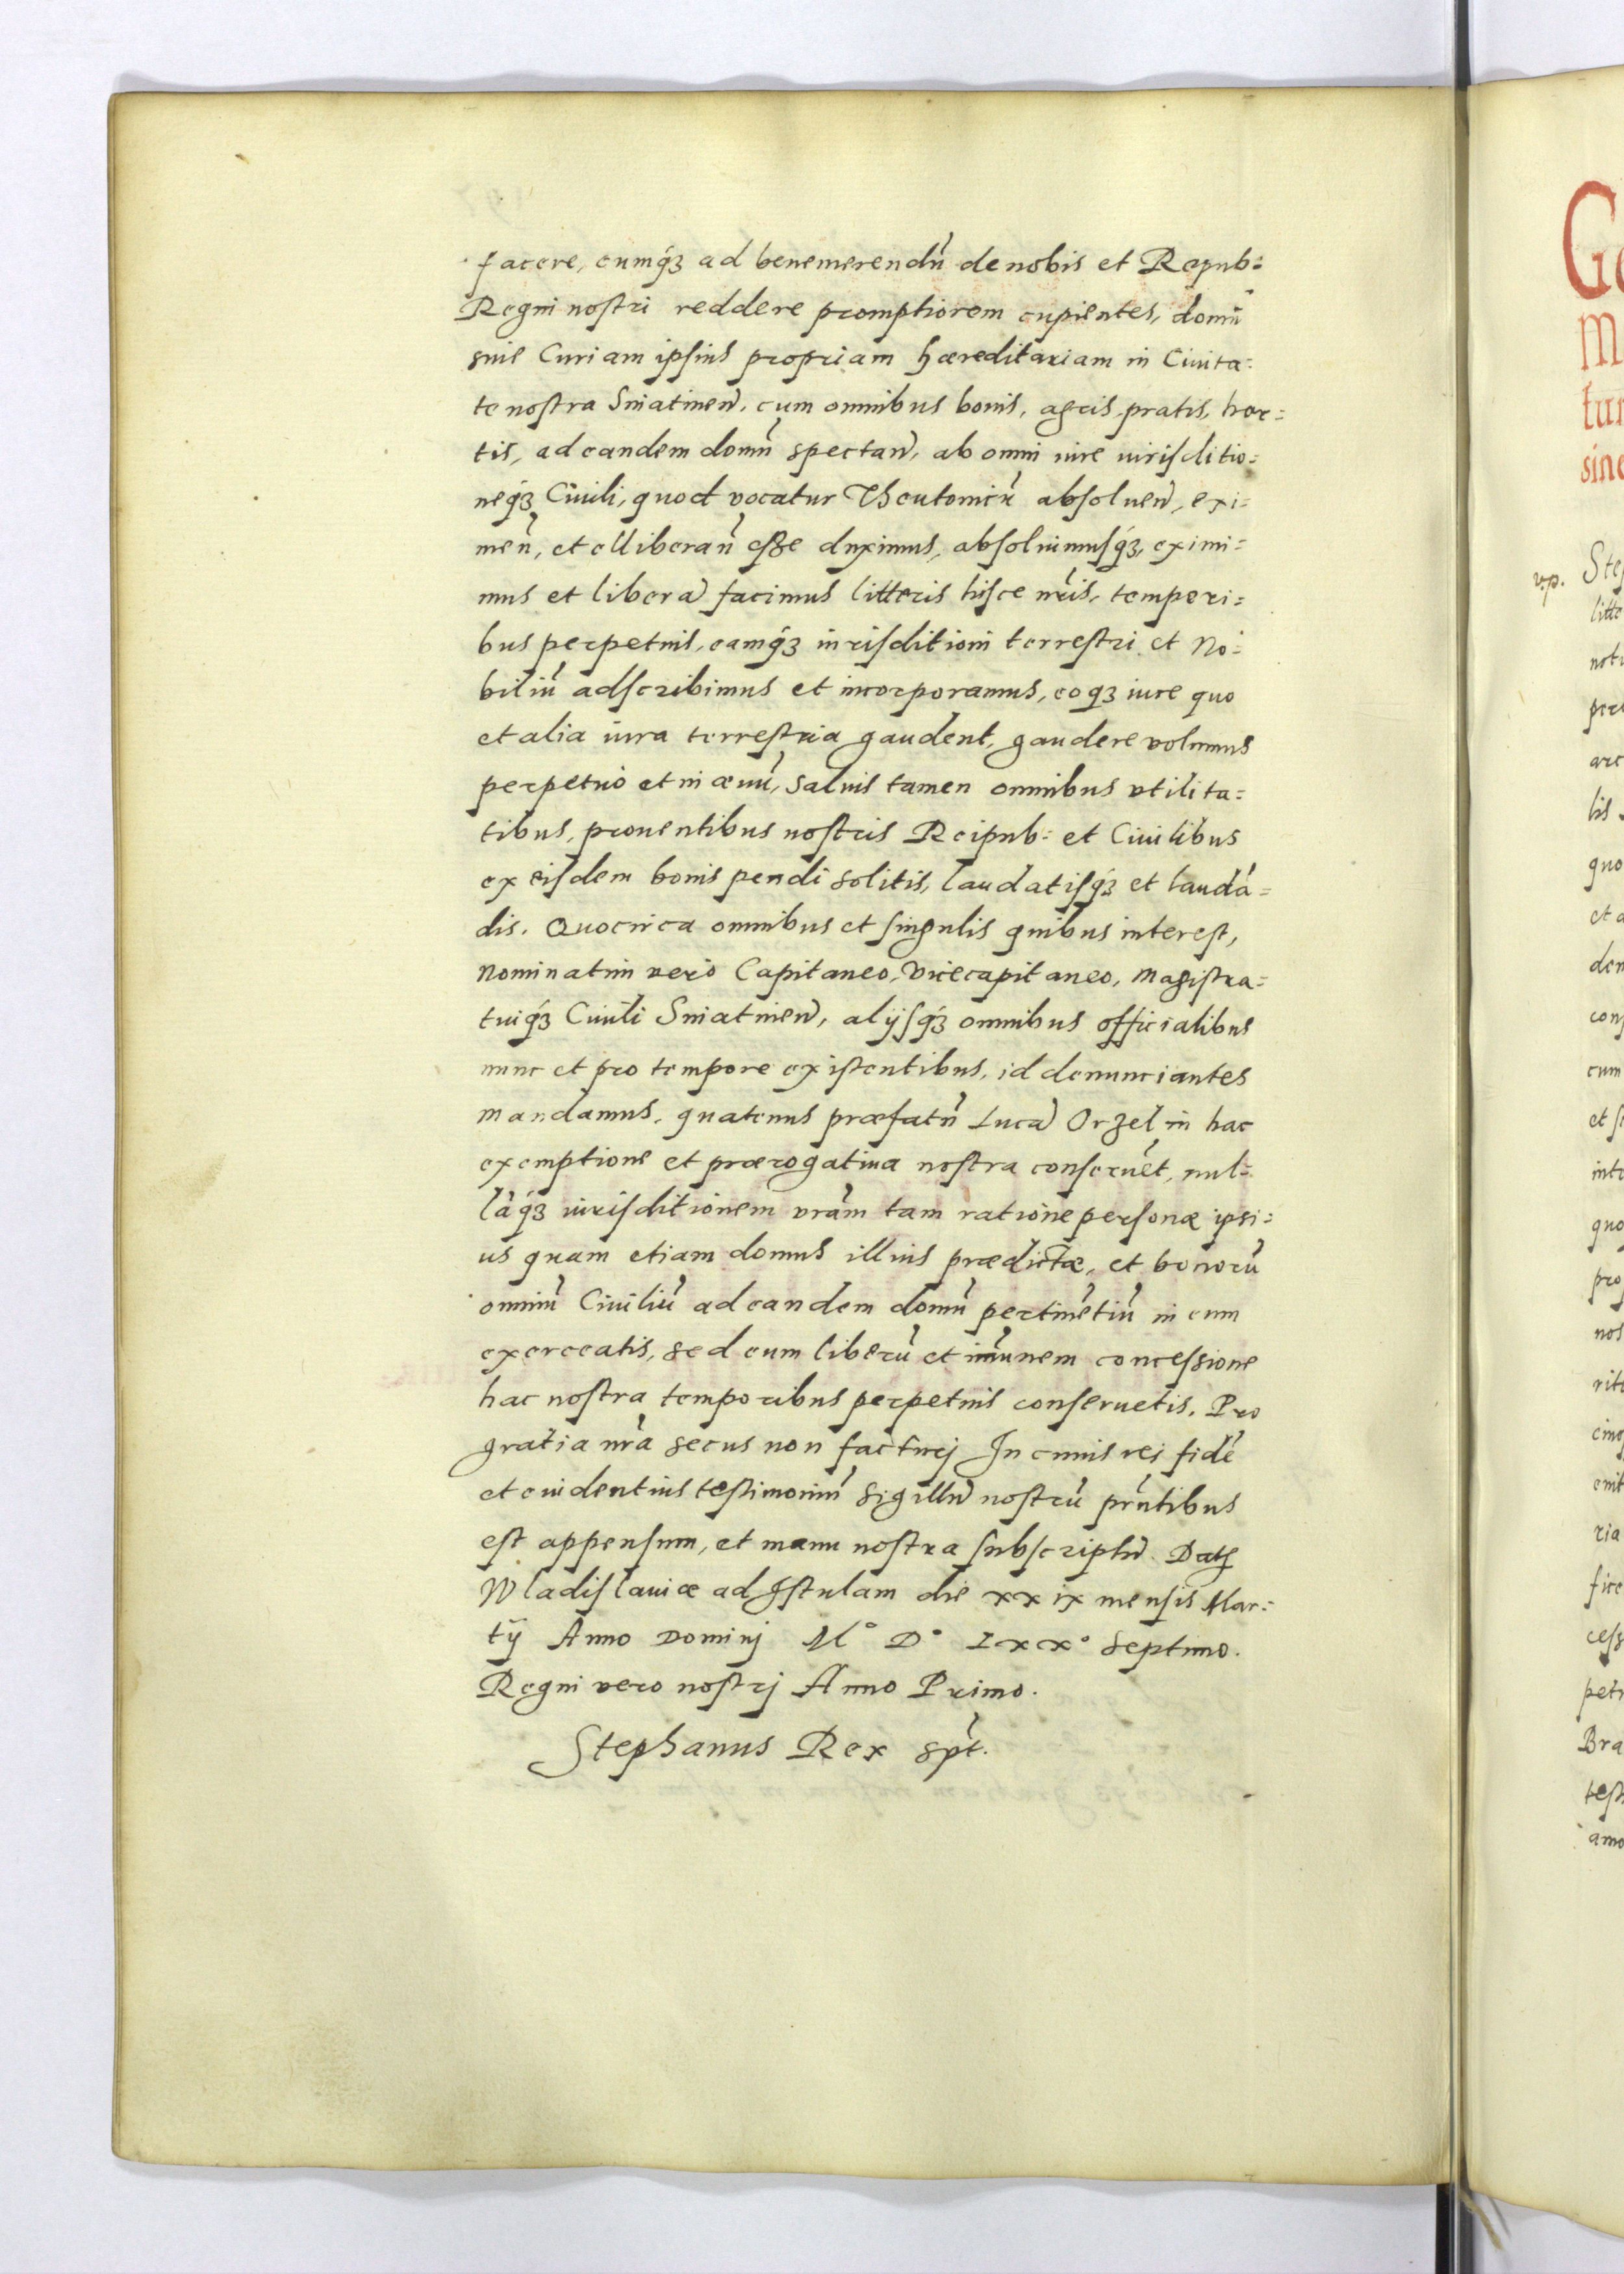 facere, eumq́ꝫ ad benemerendū de nobis et Repub:
Regni nostri reddere promptiorem cupientes, domū
siue Curiam ipsius propriam hæreditariam in Ciuita=
te nostra Sniatinen̄. cum omnibus bonis, agris, pratis, hor=
tis, ad eandem domū spectan̄, ab omni iure iurisditio=
neq́ꝫ Ciuili, quod vocatur Theutonicū absoluen̄, exi=
men̄, et elliberan̄ esse duximus, absoluimusq́ꝫ, eximi=
mus et liberā facimus litteris hisce nr̄is, tempori=
bus perpetuis, eamq́ꝫ iurisditioni terrestri et No=
biliū adscribimus et incorporamus, eoqꝫ iure quo
et alia iura terrestria gaudent, gaudere volumus
perpetuò et in æuū, Saluis tamen omnibus vtilita=
tibus, prouentibus nostris Reipub: et Ciuilibus
ex eisdem bonis pendi solitis, laudatisq́ꝫ et laudā=
dis. Quocirca omnibus et singulis quibus interest,
Nominatim verò Capitaneo, Vicecapitaneo, Magistra=
tuiq́ꝫ Ciuili Sniatinen̄, alijsq́ꝫ omnibus officialibus
nunc et pro tempore existentibus, id denunciantes
mandamus, quatenus præfatū Lucā Orzel in hac
exemptione et prærogatiua nostra conseruēt, nul=
lāq́ꝫ iurisditionem vrām tam ratione personæ ipsi=
us quam etiam domus illius prædictæ, et bonorū
omniū Ciuiliū ad eandem domū pertinētiū in eum
exerceatis, sed eum liberū et im̄unem concessione
hac nostra temporibus perpetuis conseruetis. Pro
gratia nr̄a secus non facturj In cuius rei fidē
et euidentius testimoniū Sigillū nostrū prn̄tibus
est appensum, et manu nostra subscriptū. Datꝭ
Wladislauiæ ad Istulam die xx ix mensis Mar=
tij Anno Dominj M° D° Lxx° septimo.
Regni vero nostrj Anno Primo.
Stephanus Rex sp̄t.